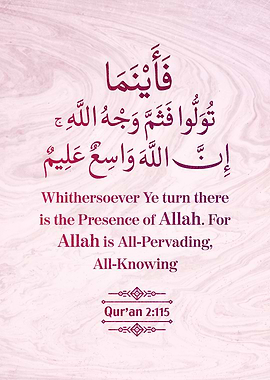 فَأَيْنَمَا
تُوَلُّوا فَثَمَّ وَجْهُ اللَّهِ ۚ
إِنَّ اللَّهَ وَاسِعٌ عَلِيمٌ
Whithersoever Ye turn there
is the Presence of Allah. For
Allah is All-Pervading,
All-Knowing
Qur'an 2:115